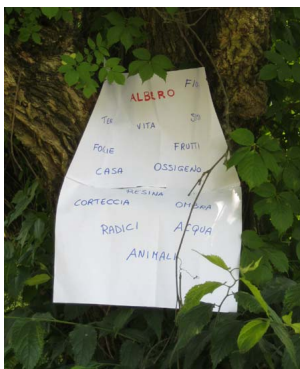 ALBERO
VITA
FOGLIE FRUTTI
CASA OSSIGENO
RESINA
CORTECCIA OMBRA
RADICI ACQUA
ANIMALI